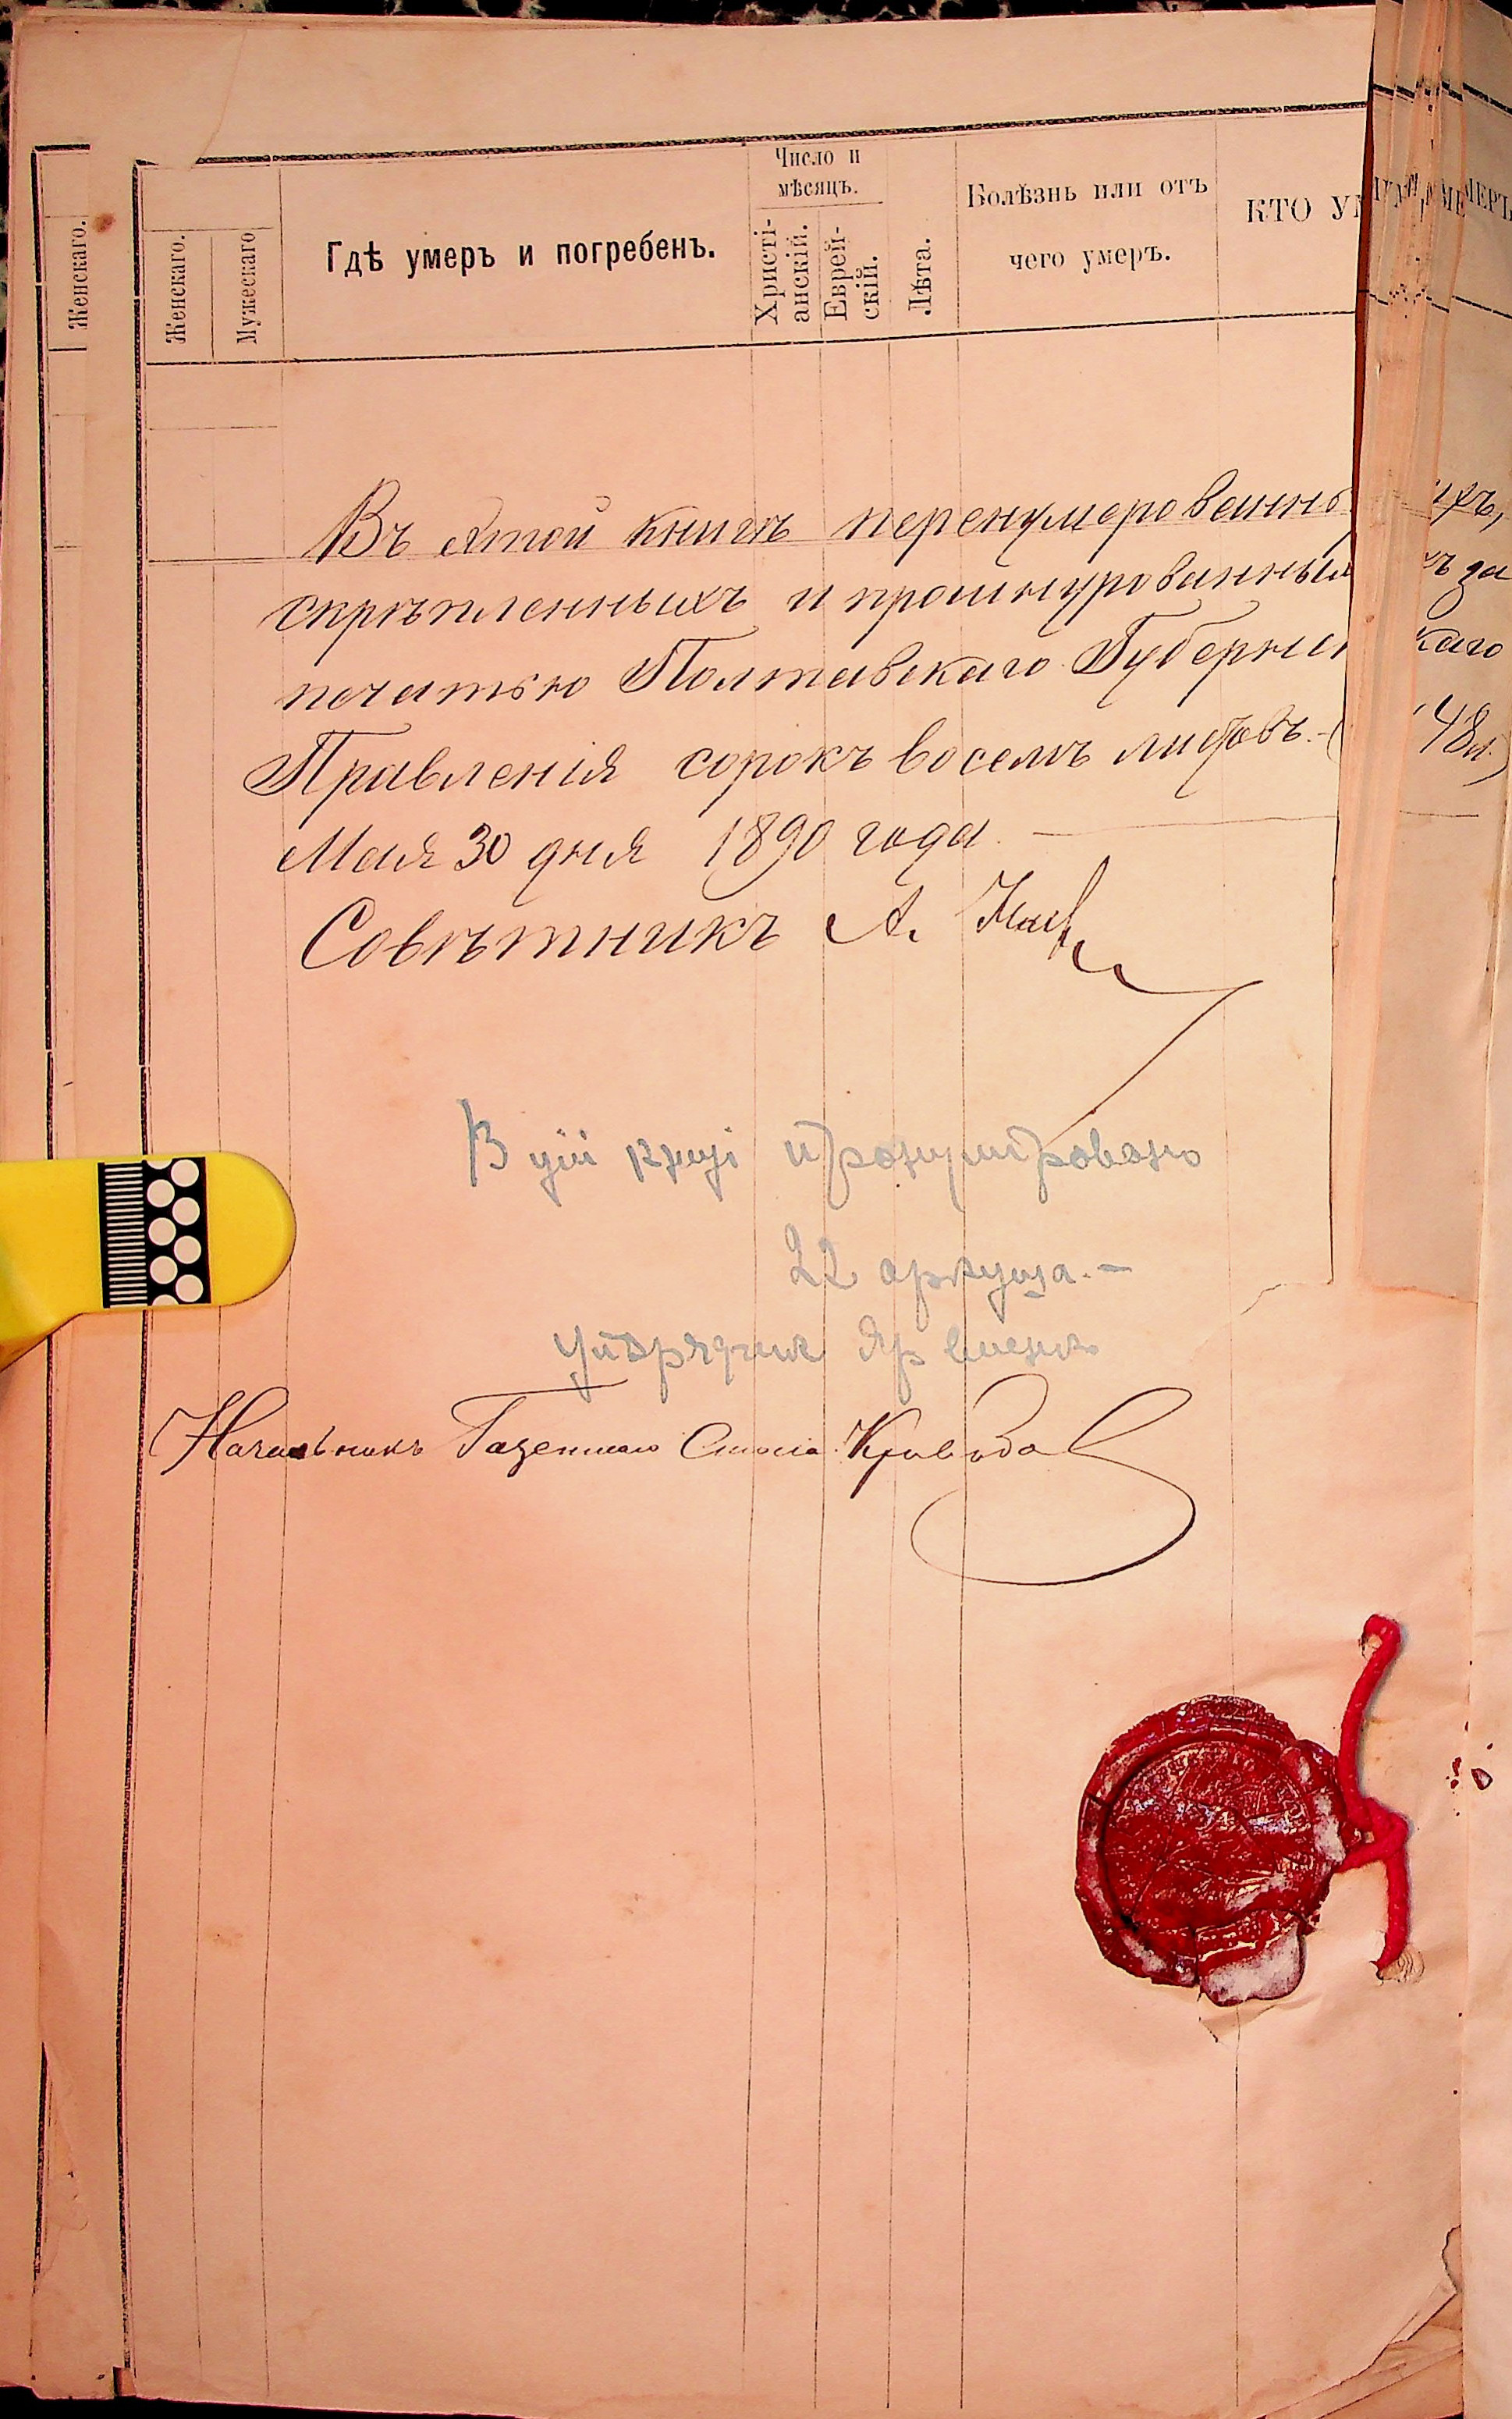 Женскаго.
Женскаго.
Мужескаго
Гдѣ умеръ и погребенъ.
Число и
мѣсяцъ.
Христі-
анскій.
Еврей-
скій.
Лѣта.
Болѣзнь или отъ
чего умеръ.
КТО УМ
Въ этой книгѣ перенумерованны ихъ,
скрѣпленныхъ и прошнурованных ъ за
печатью Полтавскаго Губернс каго
Правленія сорокъ восемъ листовъ.- (48 л.)
Мая 30 дня 1890 года
Совѣтникъ А.
В цій книзі пронумеровано
22 аркуша.-
Упорядчик
Начальникъ Газетнаго Стола